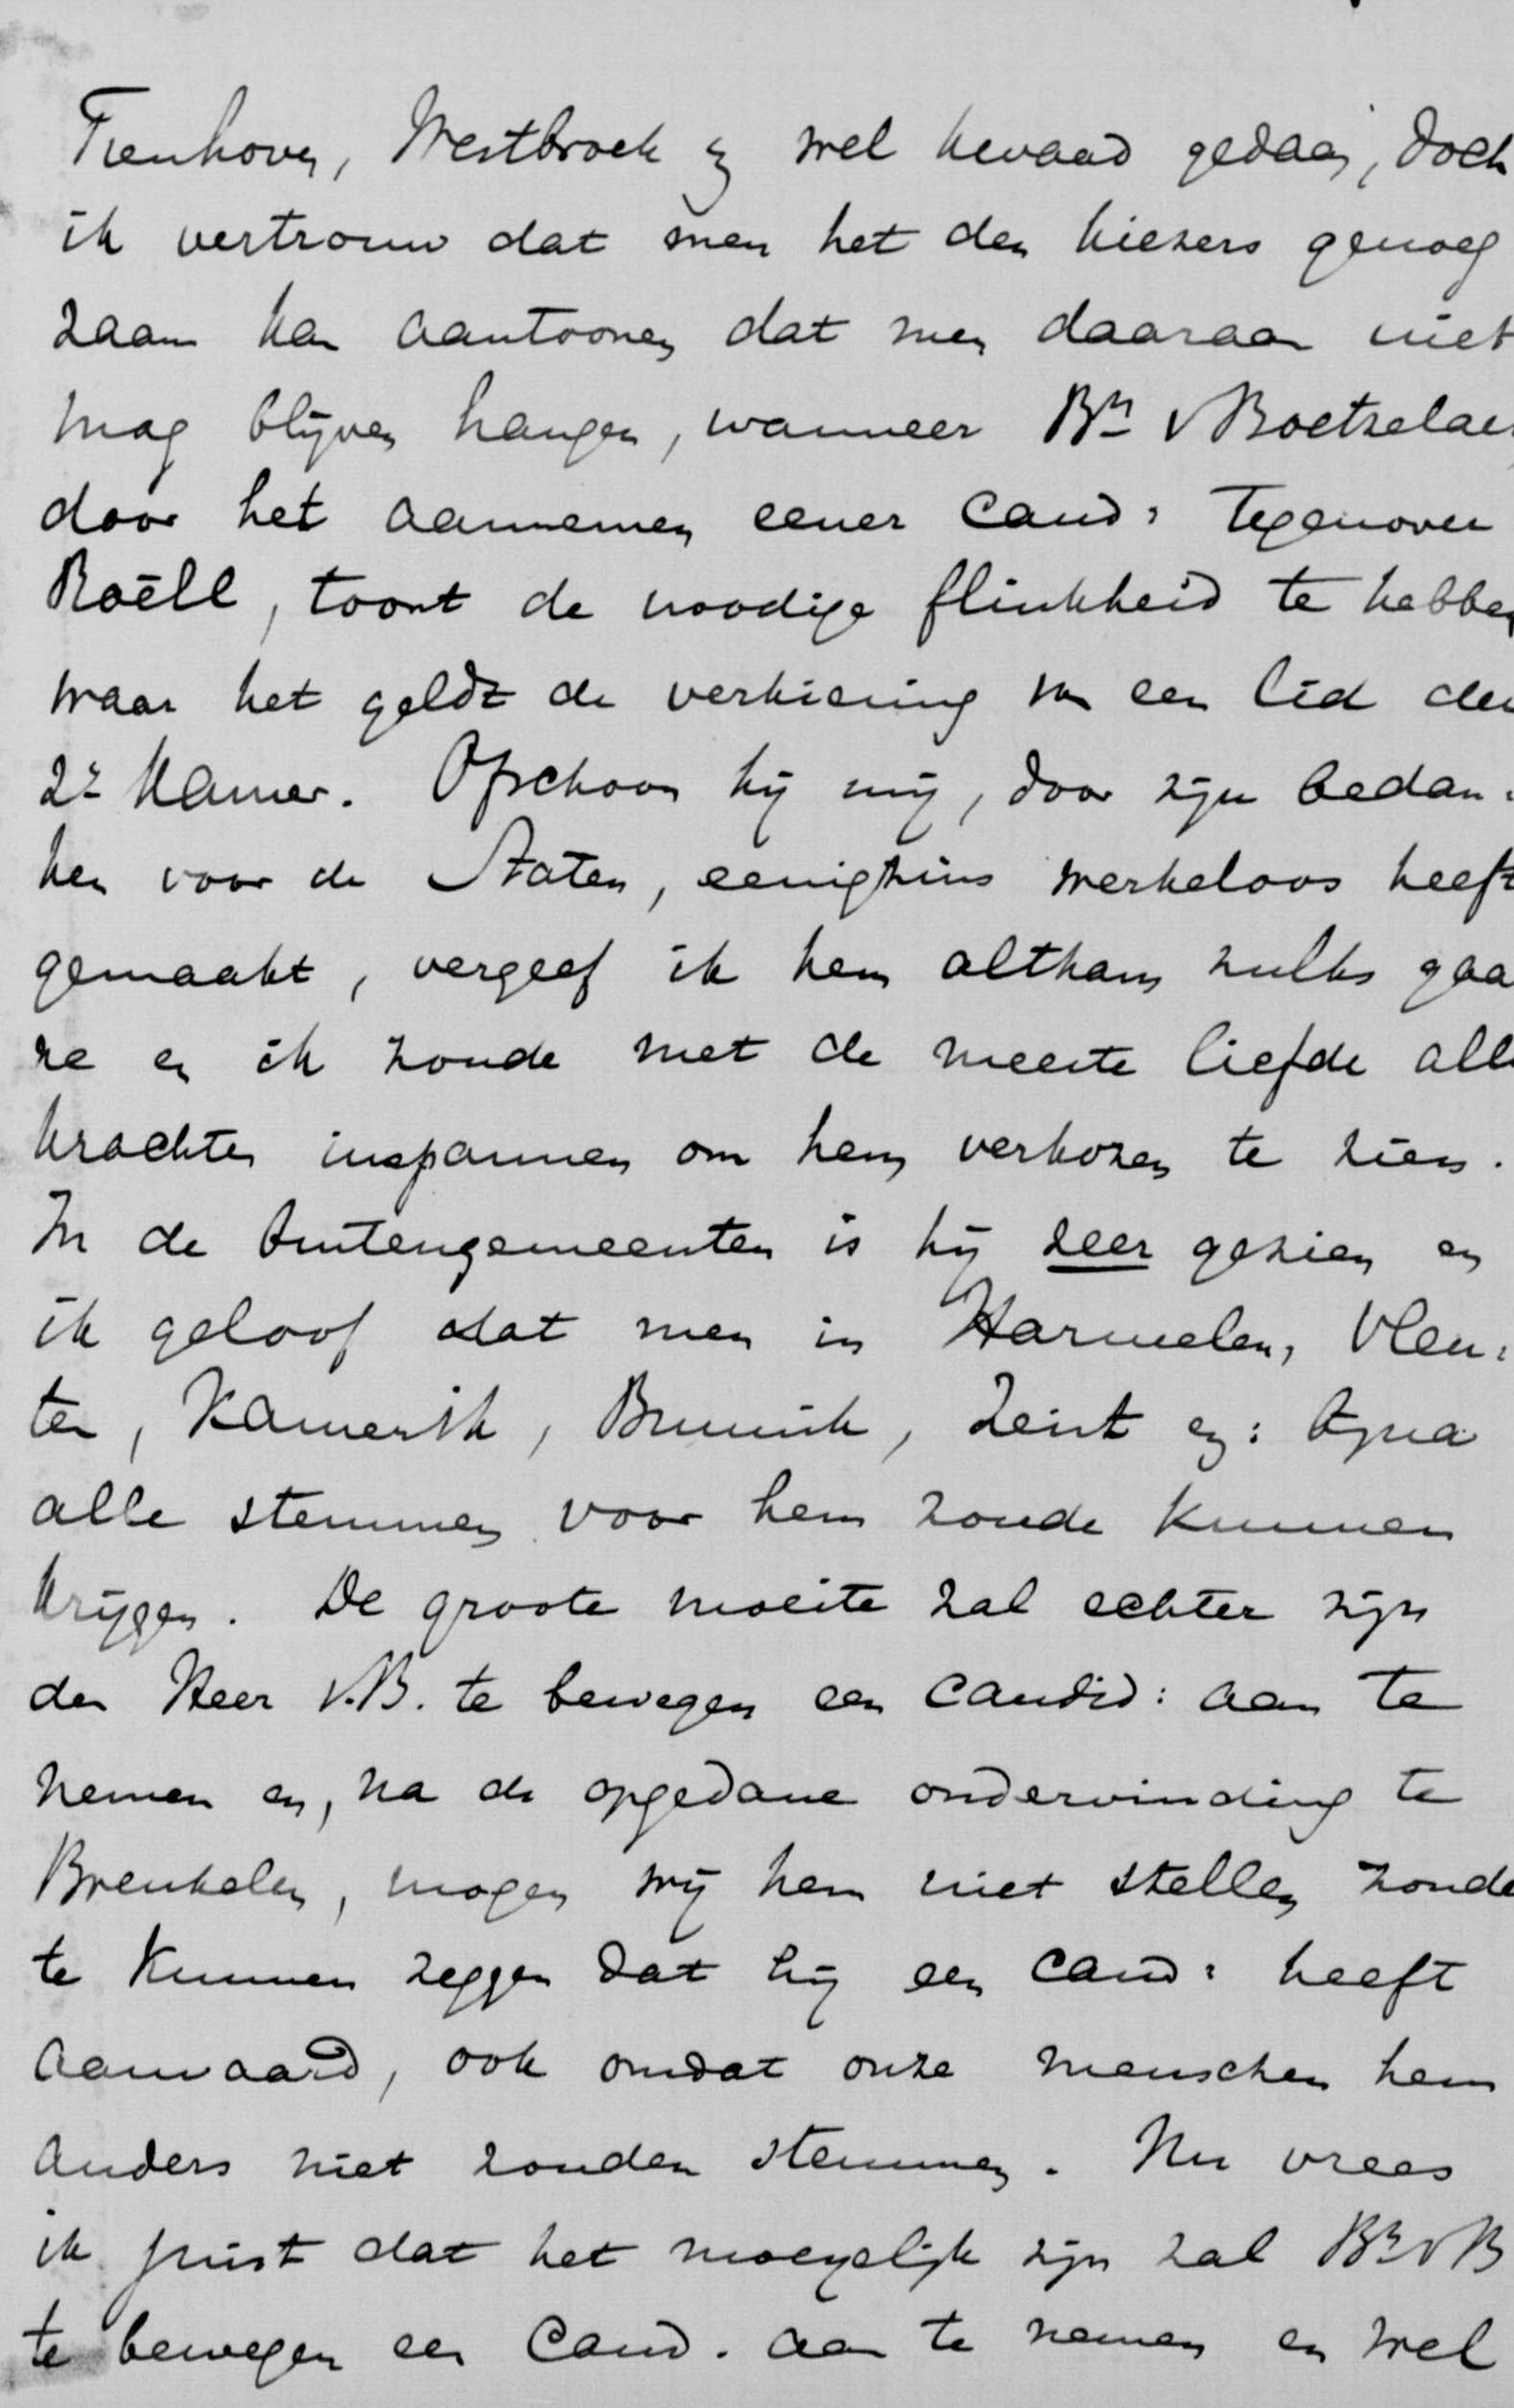 Tienhoven, Westbroek & wel kwaad gedaan, doch
ik vertrouw dat men het den kiezers genoeg
zaam kan aantoonen dat men daaraan niet
mag blijven hangen, wanneer Bn v Boetzelaer
door het aannemen eener cand: tegenover
Roëll, toont de noodige flinkheid te hebben
waar het geldt de verkiezing van een lid der
2e Kamer. Ofschoon hij mij, door zijn bedan:
ken voor de Staten, eenigzins werkeloos heeft
gemaakt, vergeef ik hem althans zulks gaar
ne en ik zoude met de meeste liefde alle
krachten inspannen om hem verkozen te zien.
In de buitengemeenten is hij zeer gezien en
ik geloof dat men in Harmelen, Vleu:
ten, Kamerik, Bunnik, Zeist en: bijna
alle stemmen voor hem zoude kunnen
krijgen. De groote moeite zal echter zijn
den Heer v.B. te bewegen een candid: aan te
nemen en, na de opgedane ondervinding te
Breukelen, mogen wij hem niet stellen zonder
te kunnen zeggen dat hij een cand: heeft
aanvaard, ook omdat onze menschen hem
anders niet zouden stemmen. Nu vrees
ik juist dat het moeyelijk zijn zal Bn v B
te bewegen een Cand. aan te nemen en wel